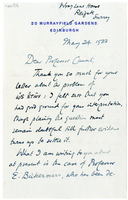 20 MURRAYFIELD GARDENS
EDINBURGH
May 24. 1933
Dear Professor
Thank you so much for your
letter about the problem of
I felt sure that you
had good ground for your interpretation,
though placing the question must
remain doubtful till further evidence
turns up to settle it.
What I am writing to you about
at present is the case of Professor
E. Bickerman, who has been de-